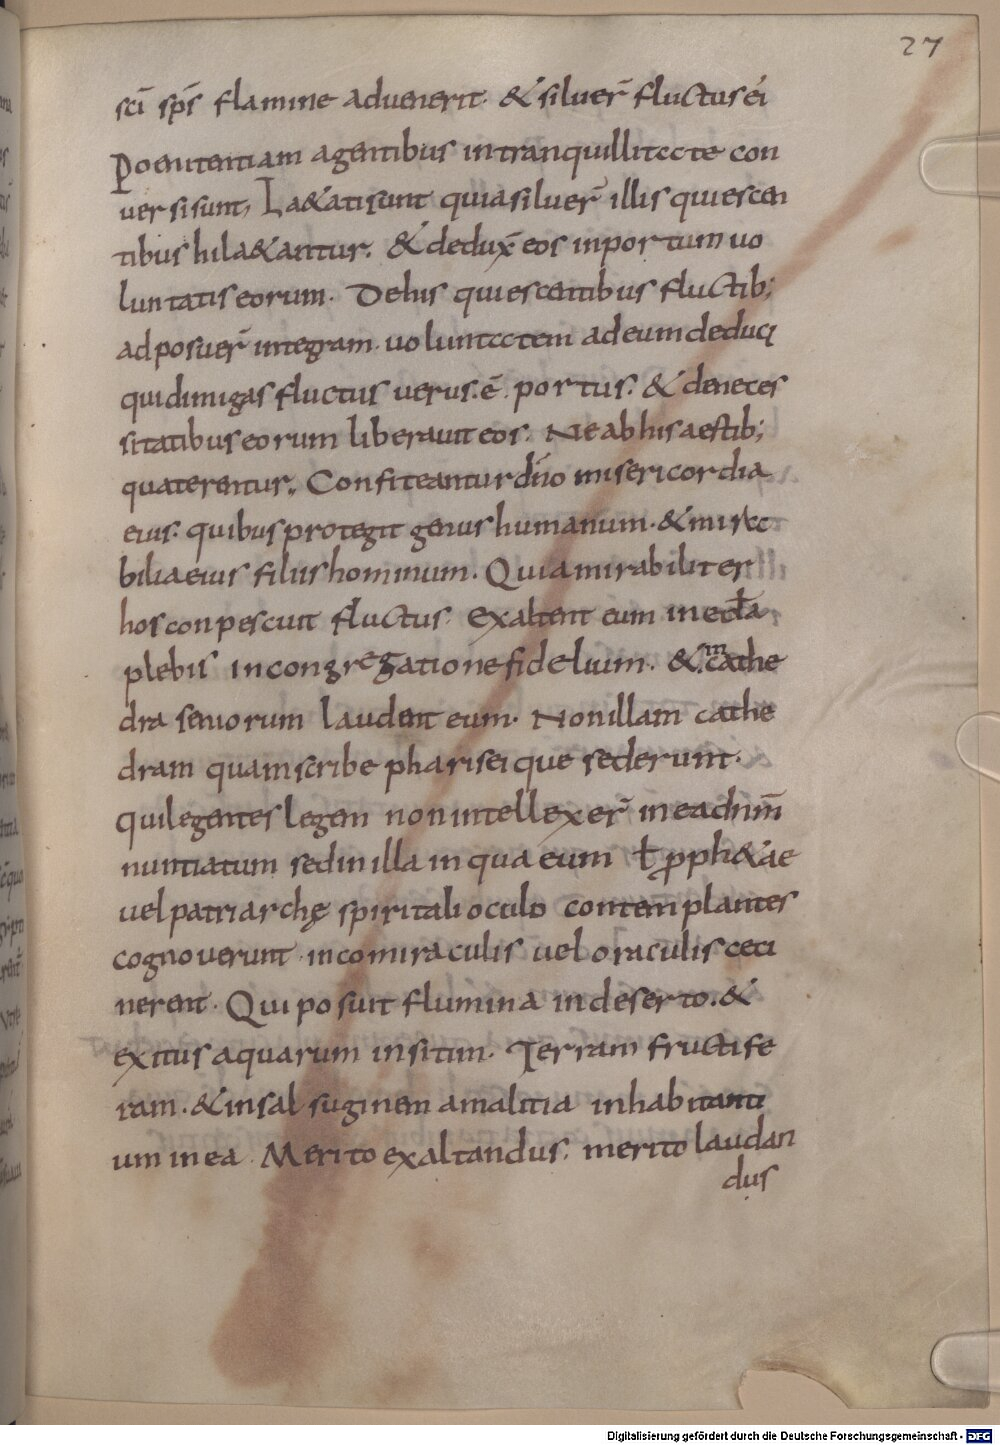 27
sc̄i sp̄s flamine aduenerit. & siluer̄ fluctus ei
Poenitentiam agentibus in tranquillitate con
uersi sunt, Laetati sunt quia siluer̄ illis quiescen
tibus hilaetantur. & dedux̄ eos in portum uo
luntatis eorum. De his quiescentibus fluctib;
adposuer̄ integram uoluntatem ad eum deduci
qui dimigas fluctus uerus .ē. portus. & de neces
sitatibus eorum liberauit eos. Ne ab his aestib;
quaterentur. Confiteantur dn̄o misericordia
eius. quibus protegit genus humanum. & mira
bilia eius filiis hominum. Quia mirabiliter
hos conpescuit fluctus. Exaltent eum in eccł̄a
plebis in congregatione fidelium. & in cathe
dra seniorum laudent eum. Non illam cathe
dram quam scribe pharisei que sederunt.
qui legentes legem non intellexer̄ in ea dn̄m̄
nuntiatum sed in illa in qua eum ł pph&ae
uel patriarchę spiritali oculo contemplantes
cognouerunt in eo miraculis uel oraculis ceci
nerent. Qui posuit flumina in deserto. &
exitus aquarum in sitim. Terram fructife
ram. & in salsuginem a malitia inhabitanti
um in ea. Merito exaltandus. merito laudan
dus
Digitalisierung gefördert durch die Deutsche Forschungsgemeinschaft - DFG